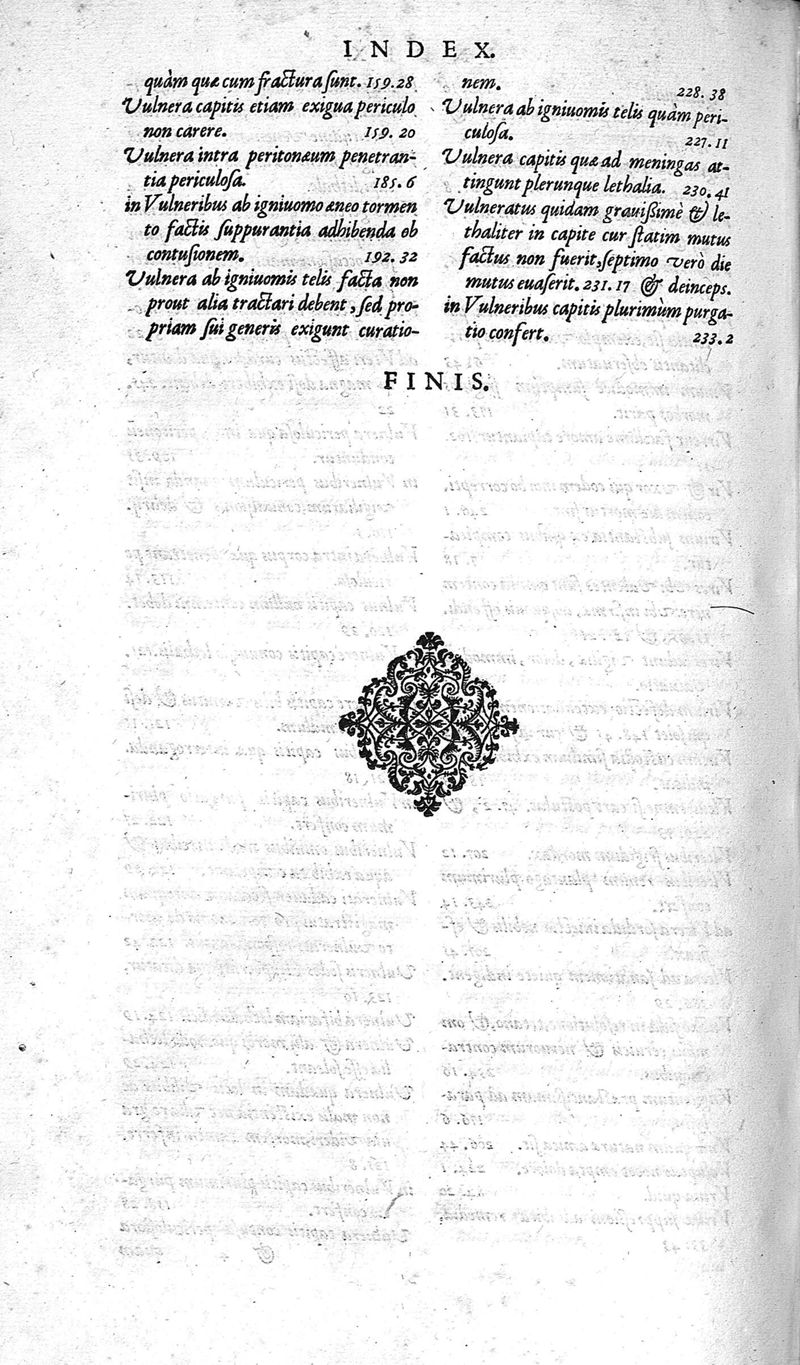 INDEX.
quàm quæ cum fractura ſunt. 159.28
Vulnera capitis etiam exigua periculo
non carere. 159. 20
Vulnera intra peritonæum penetran-
tia periculoſa. 185. 6
in Vulneribus ab igniuomo æneo tormen
to factis ſuppurantia adhibenda ob
contuſionem. 192. 32
Vulnera ab igniuomis telis facta non
prout alia tractari debent, ſed pro-
priam ſui generis exigunt curatio-
nem. 228. 38
Vulnera ab igniuomis telis quàm peri-
culoſa. 227. 11
Vulnera capitis quæ ad meningas at-
tingunt plerunque lethalia. 230. 41
Vulneratus quidam grauißimè & le-
thaliter in capite cur ſtatim mutus
factus non fuerit, ſeptimo verò die
mutus euaſerit. 231. 17 & deinceps.
in Vulneribus capitis plurimùm purga-
tio confert. 233. 2
FINIS.